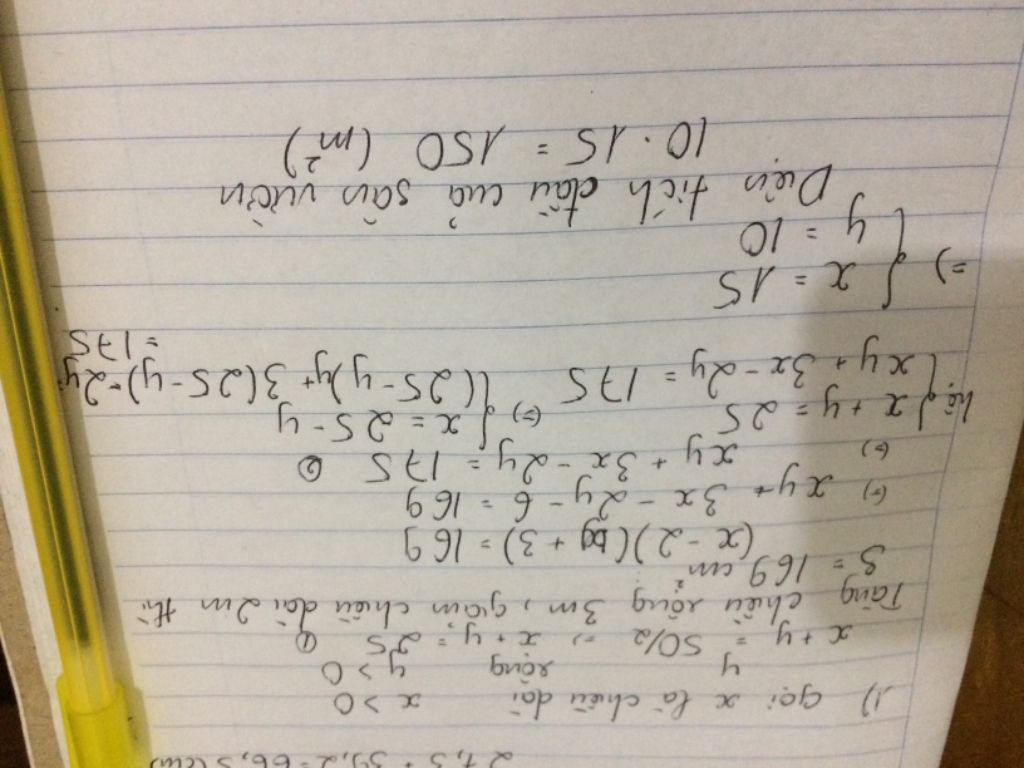 27,3 + 39,2 = 66,5 (cm)
1) Gọi x là chiều dài x > 0
y rộng y > 0
x + y = 50/2 => x + y = 25 ①
Tăng chiều rộng 3m, giảm chiều dài 2m thì
S = 169 cm²
(x - 2)(y + 3) = 169
(=) xy + 3x - 2y - 6 = 169
(=) xy + 3x - 2y = 175 ②
hệ { x + y = 25 (=) { x = 25 - y
{ xy + 3x - 2y = 175 { (25 - y)y + 3(25 - y) - 2y
= 175
=> { x = 15
{ y = 10
Diện tích đầu của sân vườn
10 . 15 = 150 (m²)